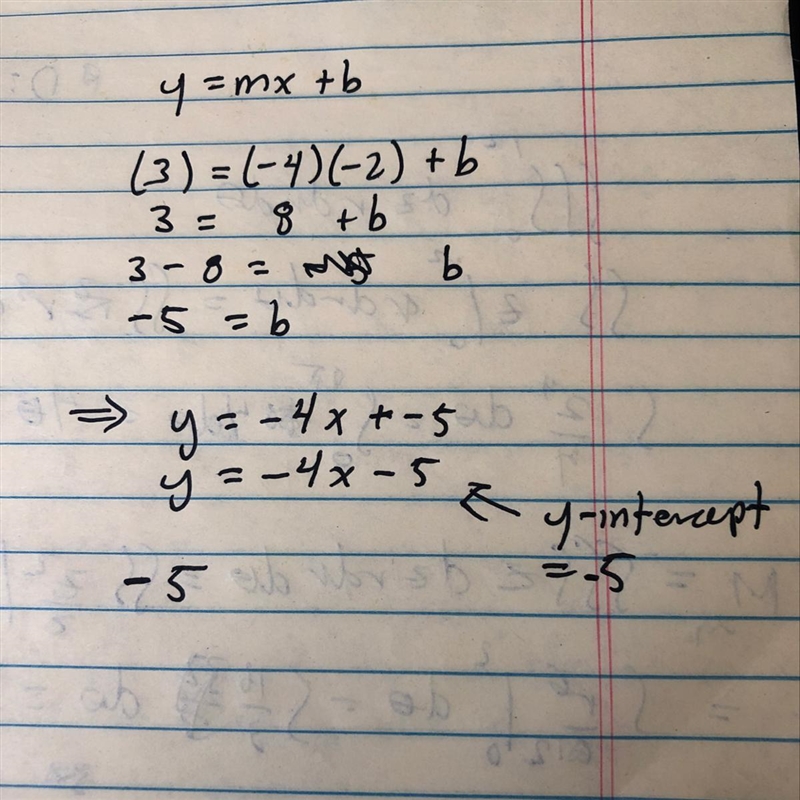 y = mx + b
(3) = (-4)(-2) + b
3 = 8 + b
3 - 8 = b
-5 = b
⇒ y = -4x + -5
y = -4x - 5
← y-intercept
= -5
-5